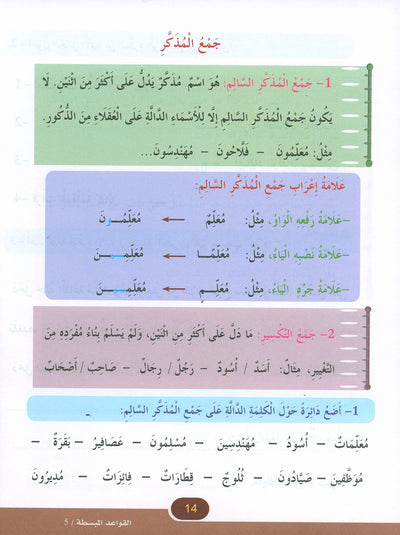 جَمْعُ الْمُذَكَّرِ
1- جَمْعُ الْمُذَكَّرِ السَّالِمِ: هُوَ اسْمٌ مُذَكَّرٌ يَدُلُّ عَلَى أَكْثَرَ مِنَ اثْنَيْنِ. لَا
يَكُونُ جَمْعُ الْمُذَكَّرِ السَّالِمِ إِلَّا لِلْأَسْمَاءِ الدَّالَّةِ عَلَى الْعُقَلَاءِ مِنَ الذُّكُورِ.
مِثْلُ: مُعَلِّمُونَ - فَلَّاحُونَ - مُهَنْدِسُونَ...
عَلَامَةُ إِعْرَابِ جَمْعِ الْمُذَكَّرِ السَّالِمِ:
-عَلَامَةُ رَفْعِهِ الْوَاوُ، مِثْلُ: مُعَلِّمٌ ← مُعَلِّمُـونَ
-عَلَامَةُ نَصْبِهِ الْيَاءُ، مِثْلُ: مُعَلِّمًا ← مُعَلِّمِـيـنَ
-عَلَامَةُ جَرِّهِ الْيَاءُ، مِثْلُ: مُعَلِّـمٍ ← مُعَلِّمِـيـنَ
2- جَمْعُ التَّكْسِيرِ: مَا دَلَّ عَلَى أَكْثَرَ مِنَ اثْنَيْنِ، وَلَمْ يَسْلَمْ بِنَاءُ مُفْرَدِهِ مِنَ
التَّغْيِيرِ، مِثَالُ: أَسَدٌ / أُسُودٌ - رَجُلٌ / رِجَالٌ - صَاحِبٌ / أَصْحَابٌ
1- أَضَعُ دَائِرَةً حَوْلَ الْكَلِمَةِ الدَّالَّةِ عَلَى جَمْعِ الْمُذَكَّرِ السَّالِمِ:
مُعَلِّمَاتٌ - أُسُودٌ - مُهَنْدِسِينَ - مُسْلِمُونَ - عَصَافِيرُ - بَقَرَةٌ -
مُوَظَّفِينَ - صَيَّادُونَ - ثُلُوجٌ - قِطَارَاتٌ - فَائِزَاتٌ - مُدِيرُونَ
14
القواعد المبسطة / 5